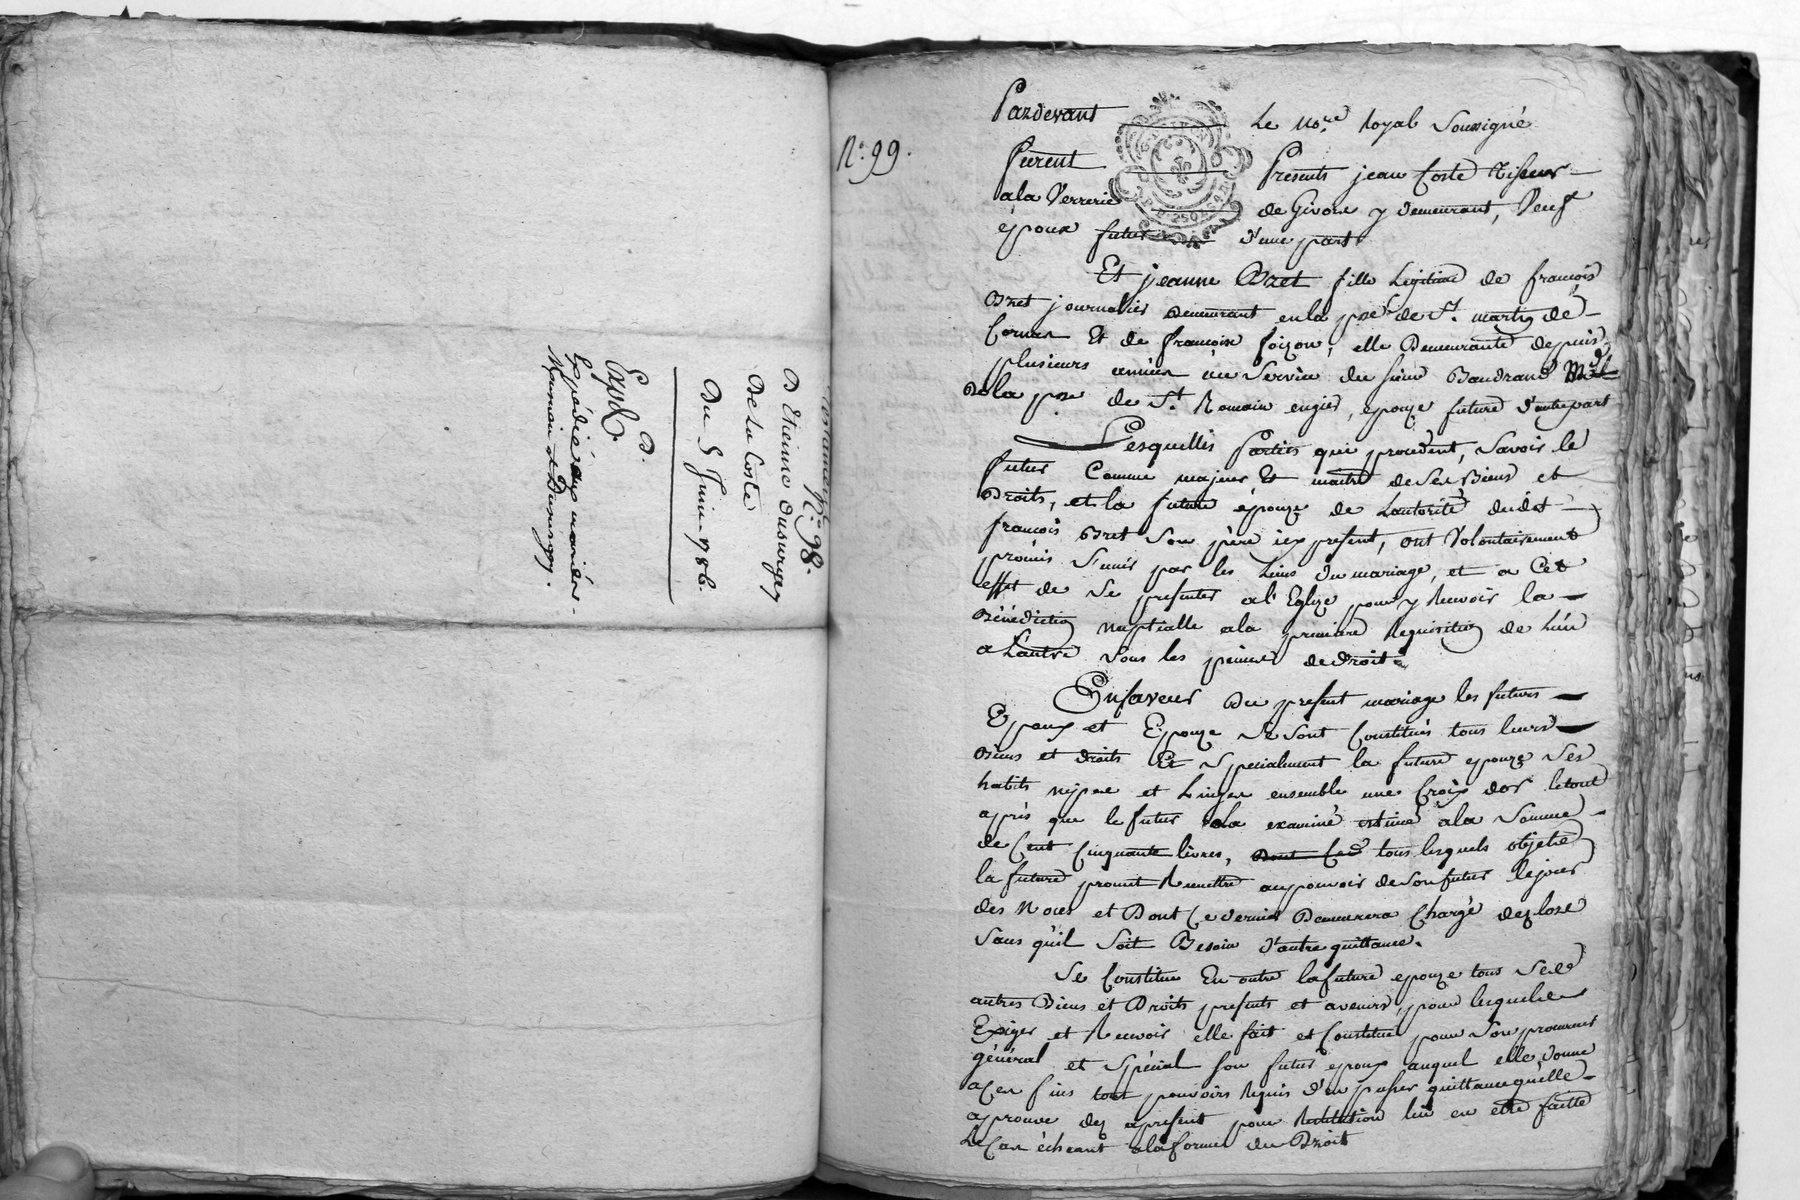 N.° 98.
D Etienne Dusurgey
De La Coste
Du 5 Juin 1786.
D.
Exp.
Expédié aux mariés
Dusurgey.
N.° 99.
Pardevant Le no.re Royal Soussigné
furent Presents jean Coste Tiseur
a la Verrerie de Givors y demeurant, Veuf
époux futur d'une part
Et jeanne Bret fille Legitime de françois
Bret journalier Demeurant en la psse de St. martin de
Cornas Et de françoise foizon, elle Demeurante depuis
plusieurs années au Service du sieur Baudrand Md
de la psse de St Romain en gier, epouze future d'autre part
Lesquelles Parties qui procedent, Savoir le
futur Comme majeur Et maitre de Ses Biens et
Droits, et la future épouze de Lautorité dudit
françois Bret Son père icy present, ont Volontairement
promis S'unir par les Liens du mariage, et a Cet
effet de Se presenter a l'Eglize pour y Recevoir la
Bénédiction nuptialle a la premiere Requisition de Lun
a Lautre Sous les peines de droit.
En faveur Du present mariage les futurs
Epoux et Epouze Se Sont Constitués tous leurs
Biens et droits Et Specialement la future epouze Ses
habits nipes et Linges ensemble une Croix dor le tout
après que le futur la examiné estimé à la Somme
de Cent Cinquante livres, Dont Ces tous lesquels objets
la future promet Remettre au pouvoir de Son futur le jour
des Noces et Dont Ce dernier Demeurera Chargé dez lors
Sans qu'il Soit Besoin d'autre quittance.
Se Constitue En outre la future epouze tous Ses
autres Biens et Droits presents et avenirs, pour lesquels
Exiger et Recevoir elle fait et Constitue pour Son procureur
général et Spécial Son futur epoux auquel elle donne
a Ces fins tout pouvoirs Requis d'en passer quittance qu'elle
aprouve dez apresent pour Restitution lui en etre faitte
Le Cas échéant a la forme du Droit